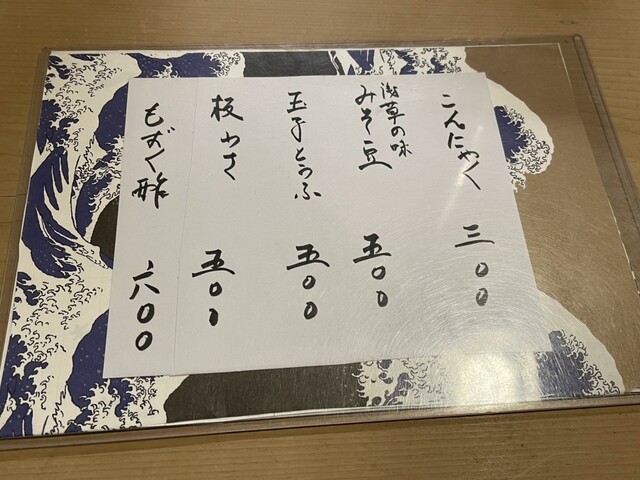 こんにゃく 三〇〇
浅草の味
みそ豆 五〇〇
玉子とうふ 五〇〇
板わさ 五〇〇
もずく酢 六〇〇